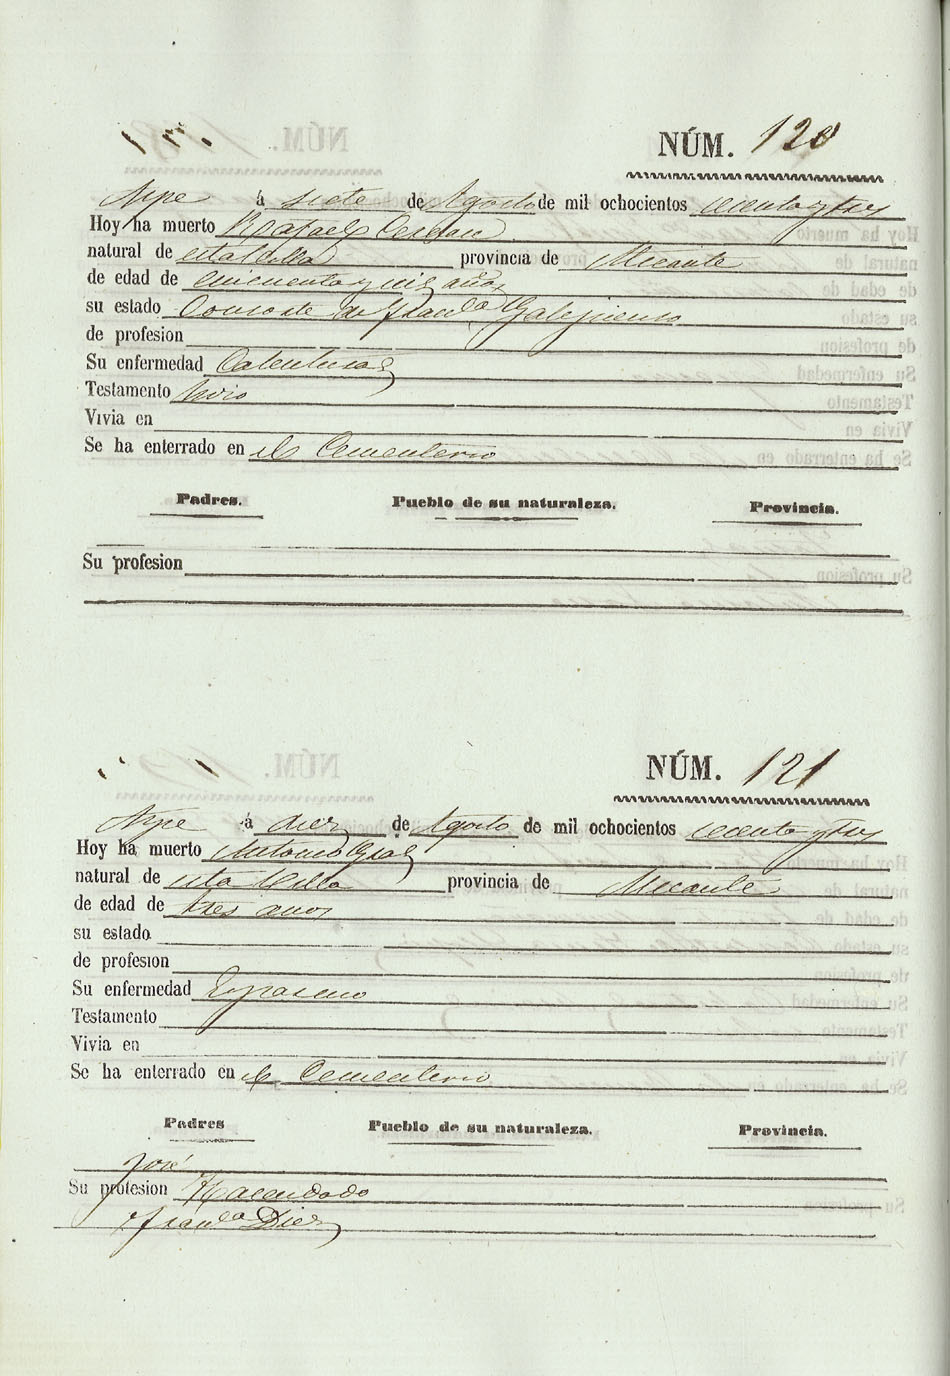 NÚM. 120
Aspe á siete de Agosto de mil ochocientos sesenta y tres
Hoy ha muerto Rafael Cerdan
natural de esta Villa provincia de Alicante
de edad de cincuenta y seis años
su estado Consorte de Franca Galipienso
de profesion
Su enfermedad Calenturas
Testamento hizo
Vivia en
Se ha enterrado en el Cementerio
Padres. Pueblo de su naturaleza. Provincia.
Su profesion
NÚM. 121
Aspe á diez de Agosto de mil ochocientos sesenta y tres
Hoy ha muerto Antonio
natural de esta Villa provincia de Alicante
de edad de tres años
su estado
de profesion
Su enfermedad
Testamento
Vivia en
Se ha enterrado en el Cementerio
Padres Pueblo de su naturaleza. Provincia.
José
Su profesion Hacendado
Franca Diez